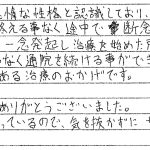 情な性格と認識しており、
終える事がなく途中で断念
一念発起し治療を始めた所
なく通院を続ける事ができ
める治療のおかげです。
ありがとうございました。
っているので、気を抜かずに